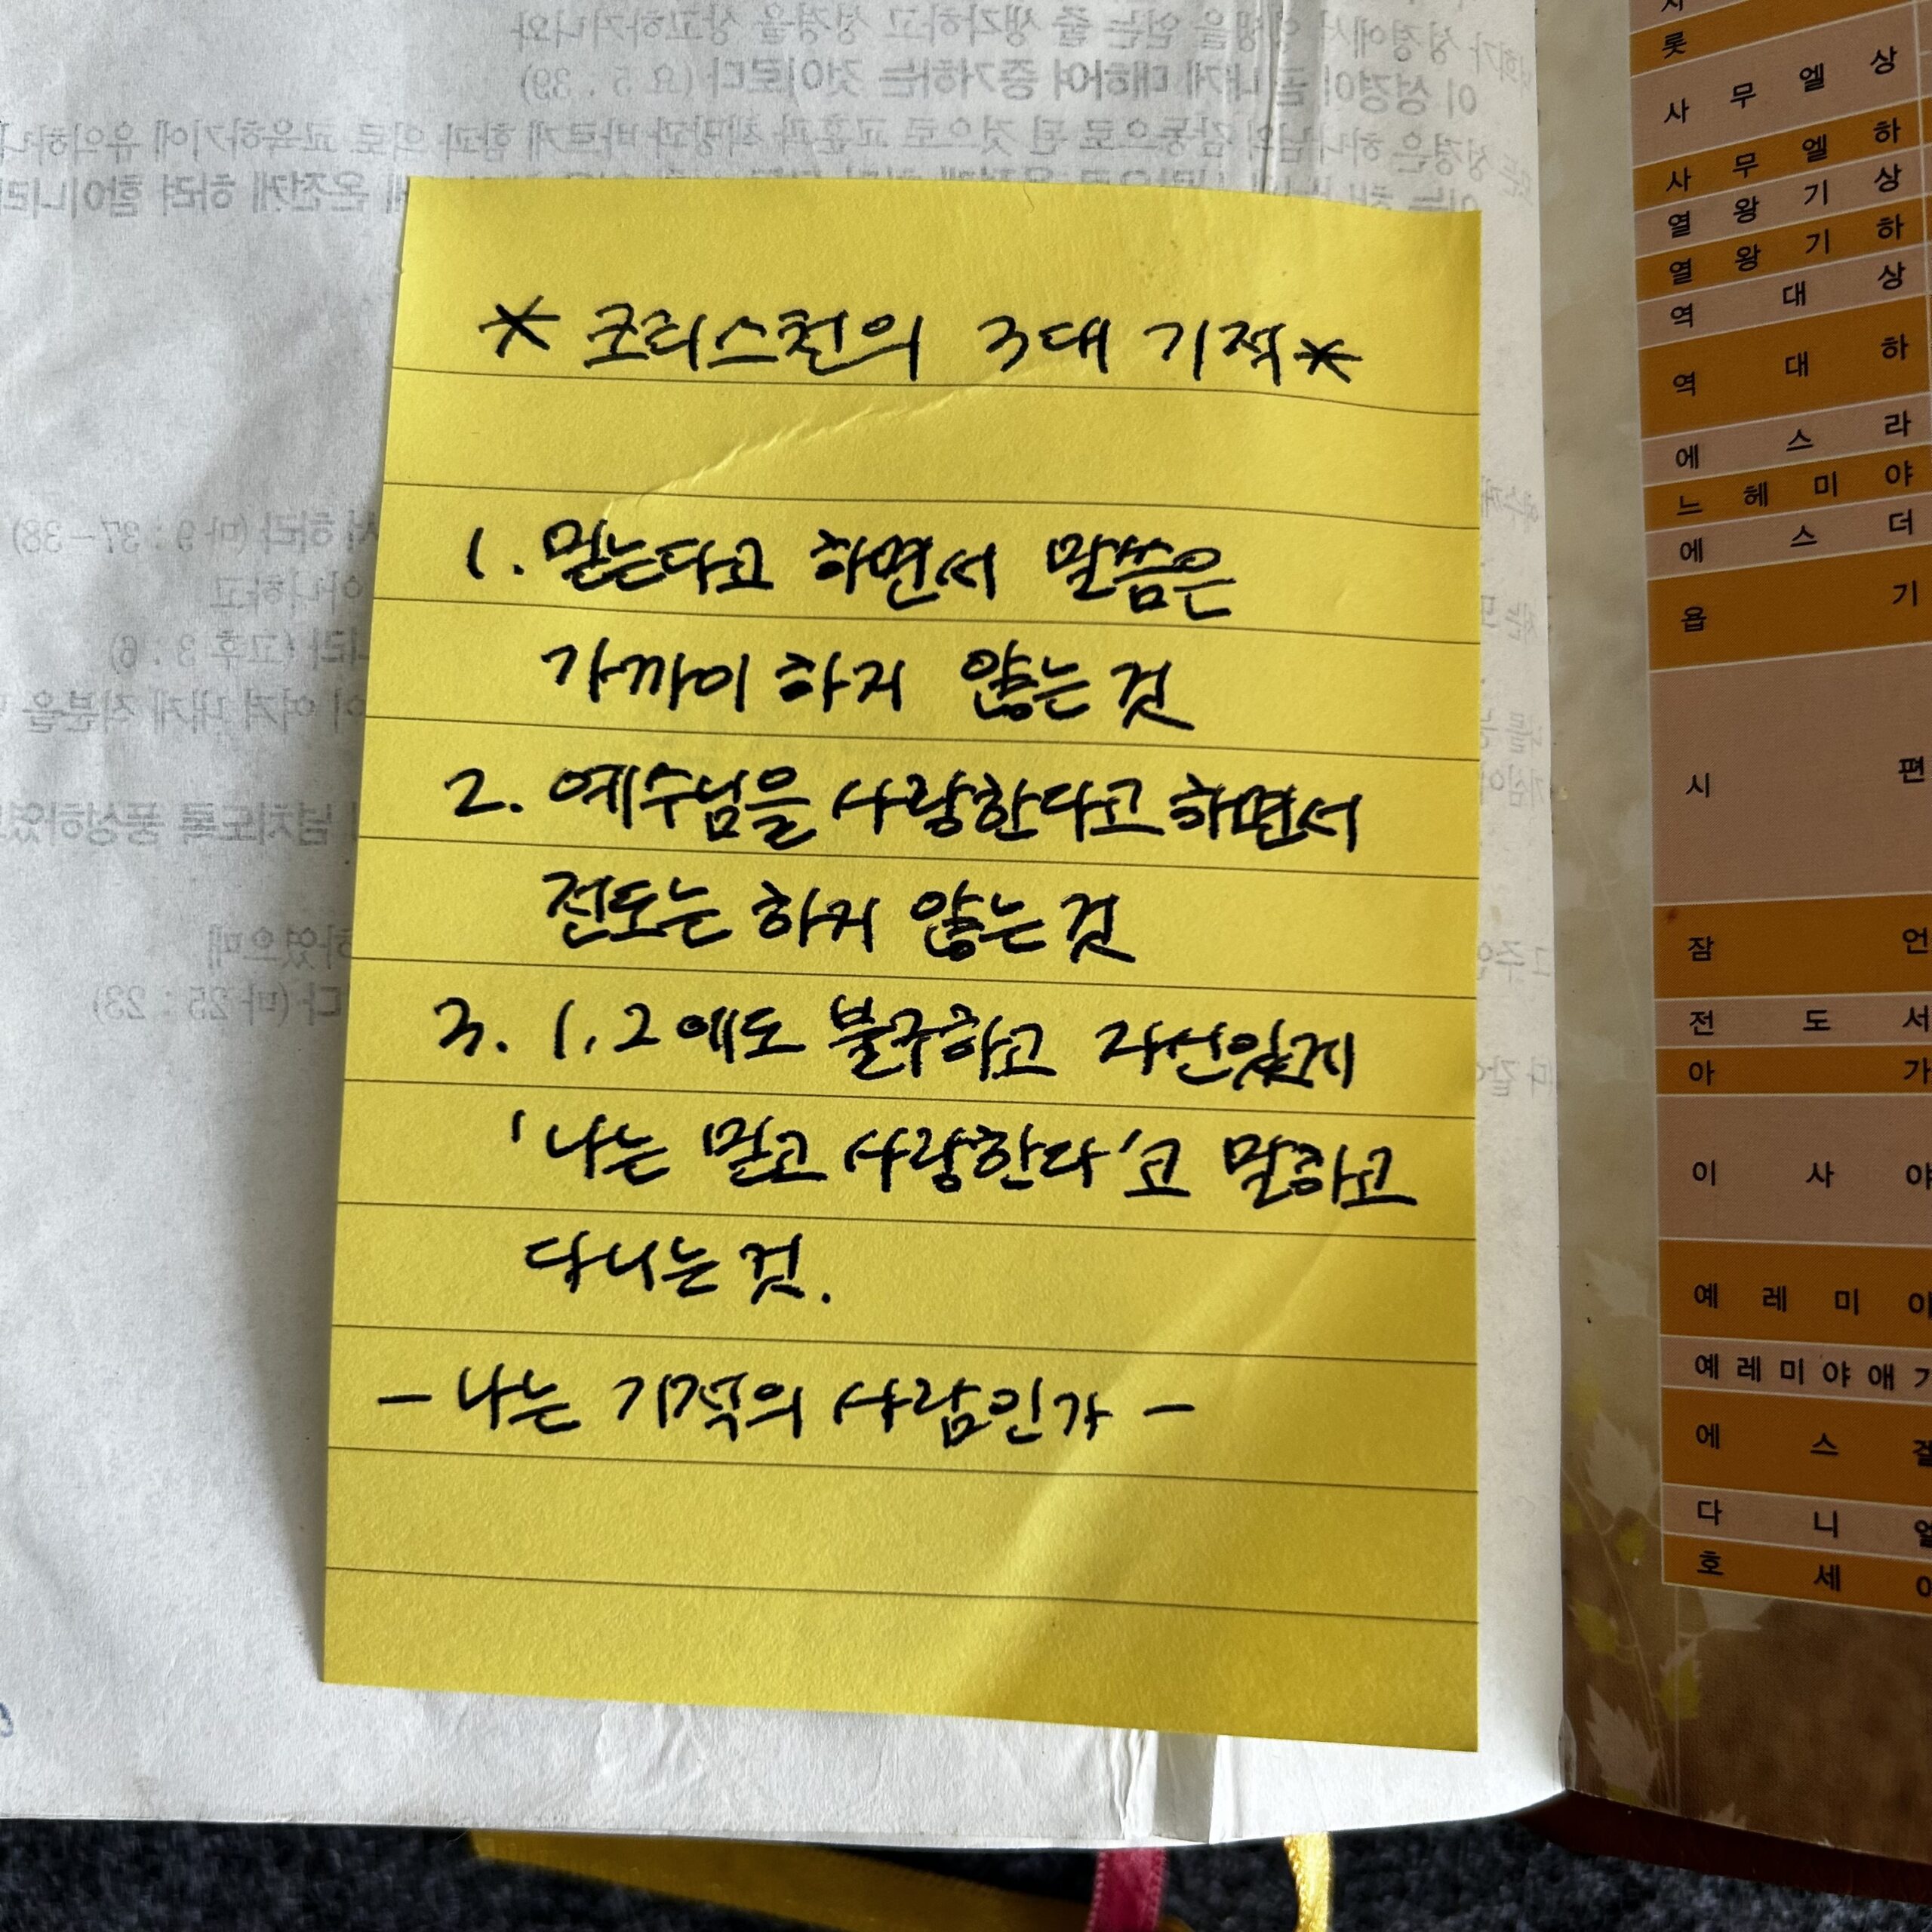 * 크리스천의 3대 기적 *
1. 믿는다고 하면서 말씀은
가까이 하지 않는 것
2. 예수님을 사랑한다고 하면서
전도는 하지 않는 것
3. 1, 2에도 불구하고 자신있게
'나는 믿고 사랑한다'고 말하고
다니는 것.
- 나는 기적의 사람인가 -
룻
사무엘상
사무엘하
열왕기상
열왕기하
역대상
역대하
에스라
느헤미야
에스더
욥기
시편
잠언
전도서
아가
이사야
예레미야
예레미야애가
에스겔
다니엘
호세아